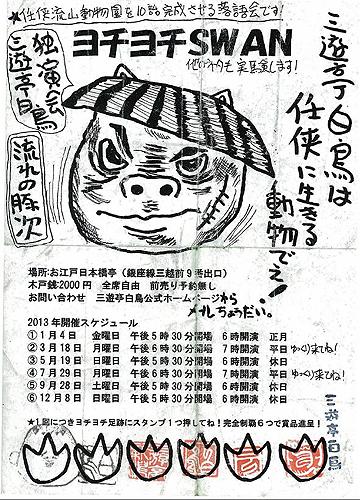 ★任侠流山動物園を10話完成させる落語会です！
ヨチヨチSWAN
他のネタも実演します！
三遊亭白鳥
独演会
流れの豚次
三遊亭白鳥は
任侠に生きる
動物でえ！
場所：お江戸日本橋亭（銀座線三越前９号出口）
木戸銭：2000円　全席自由　前売り予約無し
お問い合わせ　三遊亭白鳥公式ホームページから
メールちょうだい。
2013年開催スケジュール
①１月４日　金曜日　午後５時３０分開場　６時開演　正月
②３月１８日　月曜日　午後５時３０分開場　７時開演　平日 ゆっくり来てね！
③５月１９日　日曜日　午後５時３０分開場　６時開演　休日
④７月２９日　月曜日　午後５時３０分開場　７時開演　平日 ゆっくり来てね！
⑤９月２８日　土曜日　午後５時３０分開場　６時開演　休日
⑥１２月８日　日曜日　午後５時３０分開場　６時開演　休日
★１回につきヨチヨチ足跡にスタンプ１つ押してね！完全制覇６つで賞品進呈！
三遊亭白鳥